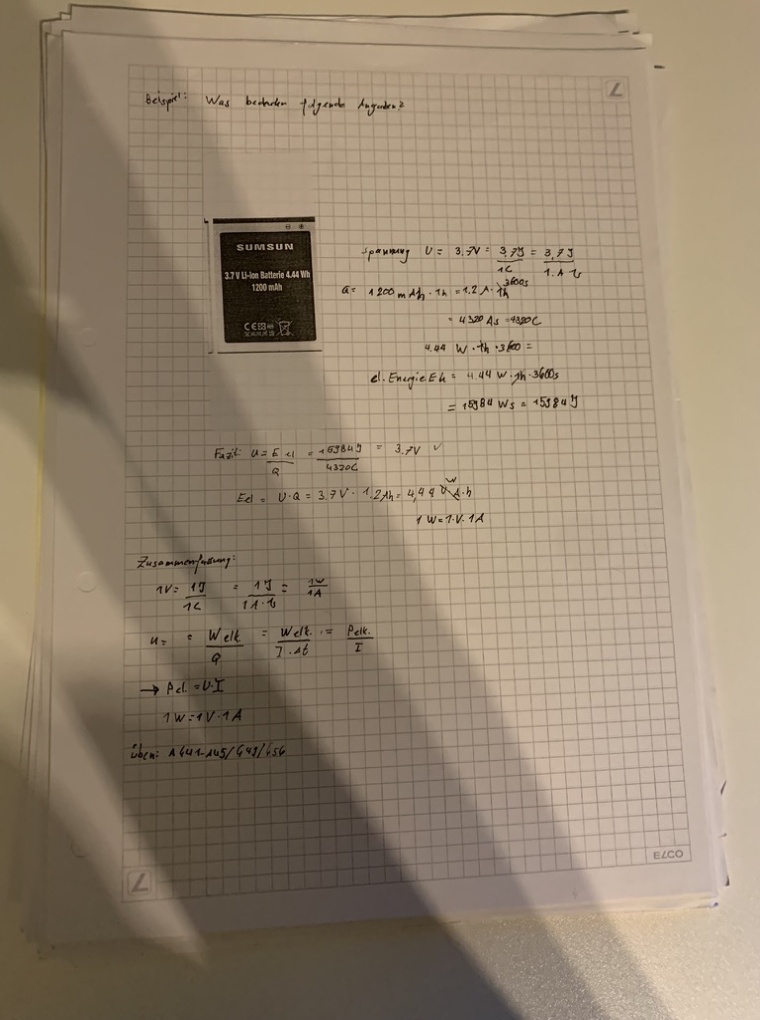 Beispiel: Was bedeuten folgende Angaben?
SUMSUN
3.7 V Li-ion Batterie 4.44 Wh
1200 mAh
CE
Spannung U = 3.7V = 3.7J/1C = 3,7J/1A·s
Q = 1200 mAh · 1h = 1.2 A · 1h 3600s
= 4320 As = 4320C
4.44 W · 1h · 3600 =
el. Energie Eel = 4.44 W · 1h · 3600s
= 15984 Ws = 15984 J
Fazit: U = Eel/Q = 15984J/4320C = 3.7V ✓
Eel = U·Q = 3.7V · 1.2Ah = 4,44 V A·h W
1W = 1·V·1A
Zusammenfassung:
1V = 1J/1C = 1J/1A·s = 1W/1A
U = = Welk/Q = Welk./I·Δt = Pelk./I
→ Pel. = U·I
1W = 1V·1A
Üben:
ELCO